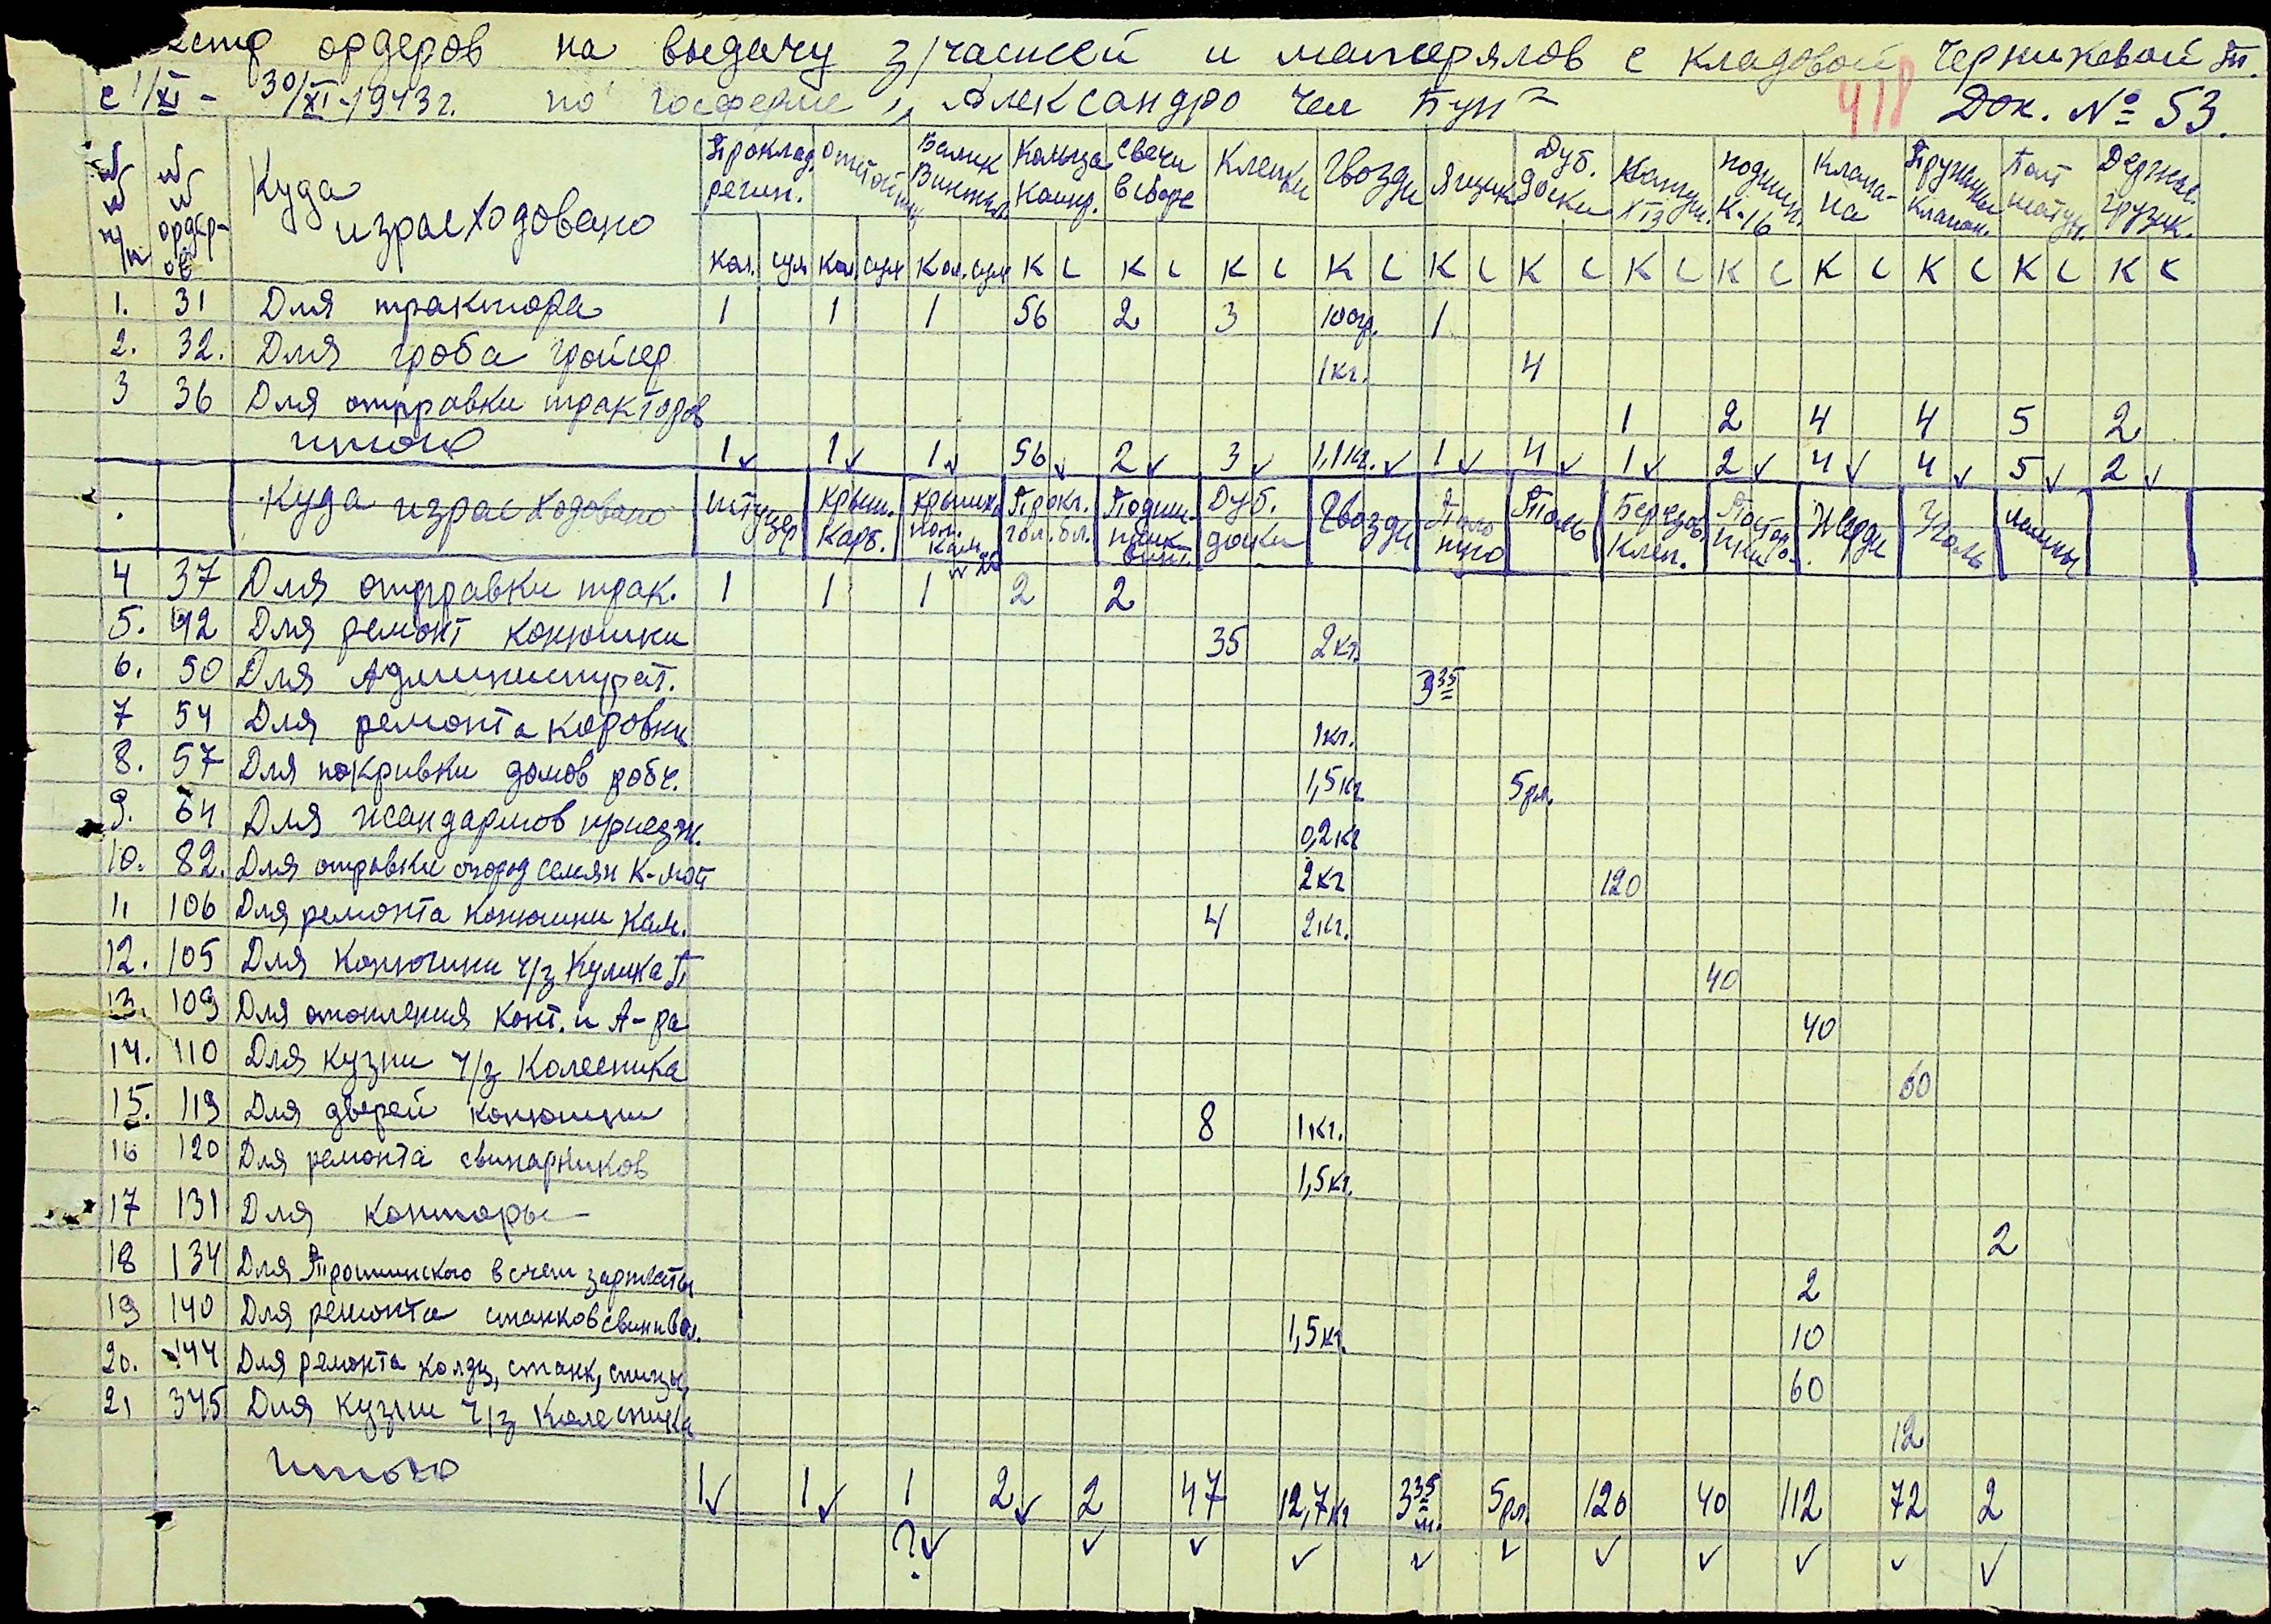 естр ордеров на выдачу з/частей и материялов с кладовой Черниковой П.
с 1/XI - 30/XI-1943 г. по госферме "Александро
418 Док. № 53.
№ № п/п № № ордер-ов Куда израсходовано Проклад. резин. Болт Кольца Свечи в сборе Клепки Гвозди Ящик Дуб. доски подшип. К-16 Клапа-на Пружины клапан. Болт шатун. Держат. грузик.
Кол. сум Кол. сум Кол. сум К С К С К С К С К С К С К С К С К С К С К С К С
1. 31 Для трактора 1 1 1 56 2 3 100гр. 1
2. 32. Для гроба 1кг. 4
3 36 Для отправки тракторов 1 2 4 4 5 2
итого 1 1 1 56 2 3 1,1 кг. 1 4 1 2 4 4 5 2
Куда израсходовано Штуцер Крыш. карб. Крышк. Прокл. гол. бл. Подши. Дуб. доски Гвозди Поло тно Толь Березов. клеп. Жерди Уголь
4 37 Для отправки трак. 1 1 1 2 2
5. 42 Для ремонт конюшки 35 2кг.
6. 50 Для Администрат. 3 35
7 54 Для ремонта коровни 1кг.
8. 57 Для покривки домов робч. 1,5кг 5 рл.
9. 64 Для жандармов приезж. 0,2кг
10. 82. Для отравки огород семян К-мот 2кг 120
11 106 Для ремонта конюшни Кам. 4 2кг.
12. 105 Для Конюшни ч/з Кулика П 40
13. 109 Для отопления конт. и А-ра 40
14. 110 Для кузни ч/з Колесника 60
15. 119 Для дверей конюшни 8 1кг.
16 120 Для ремонта свинарников 1,5кг.
17 131 Для конторы 2
18 134 Для Трошинского в счет зарплаты 2
19 140 Для ремонта станков свинВод. 1,5кг. 10
20. 144 Для ремонта станк, 60
21 345 Для кузни ч/з Колесника 12
Итого 1 1 1 2 2 47 12,7кг 3 35 м. 5рл. 120 40 112 72 2
?